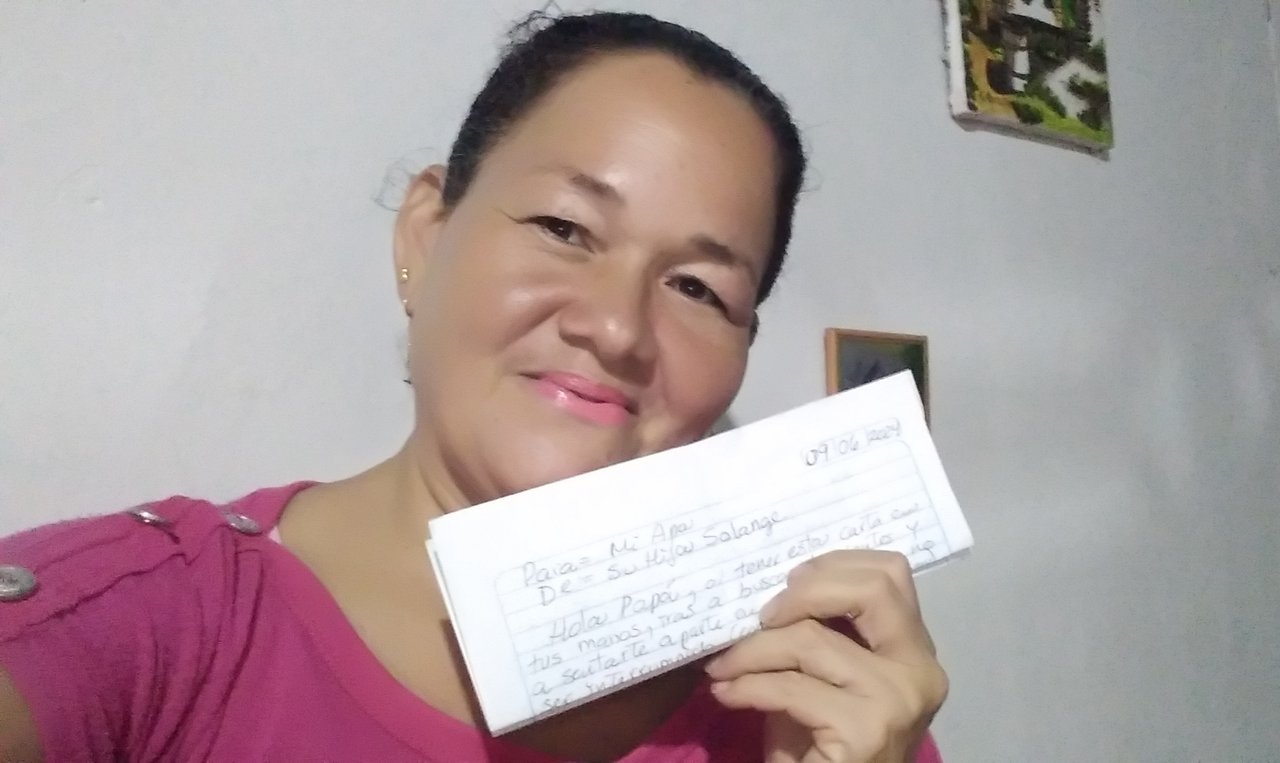 09/06/2024
Para= Mi Apa
De= Su Hija Solange
Hola Papá, al tener esta carta en
tus manos, iras a buscar y
a sentarte aparte
ser interrumpido